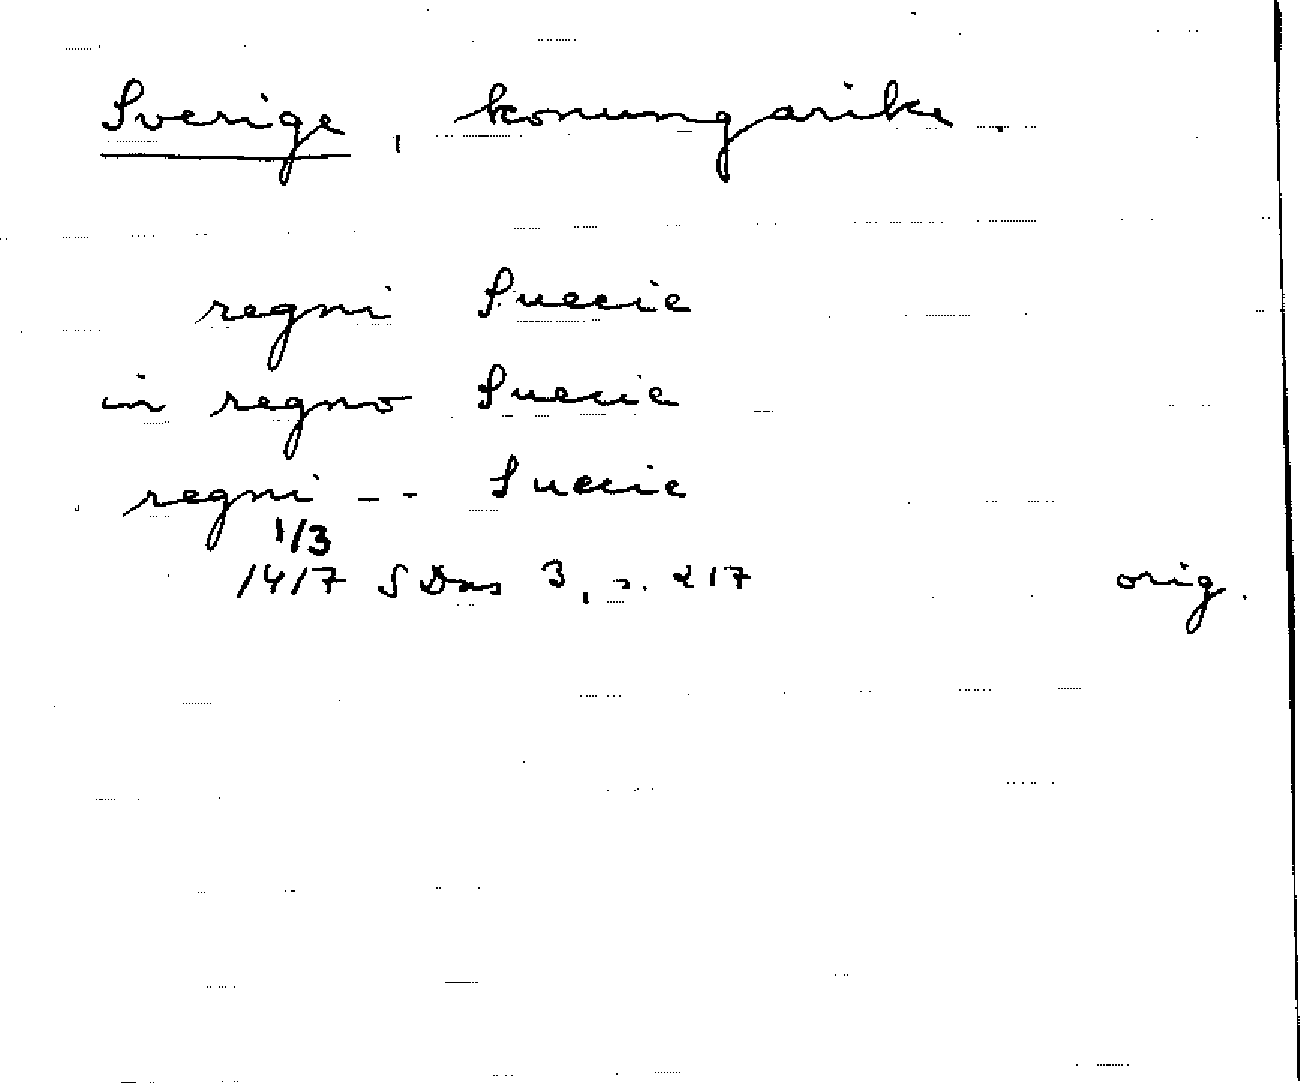 Sverige, konungarike.
regni Suecie
in regno Suecie
regni -- Suecie
1/3
1417 SDns 3, s. 217 orig.